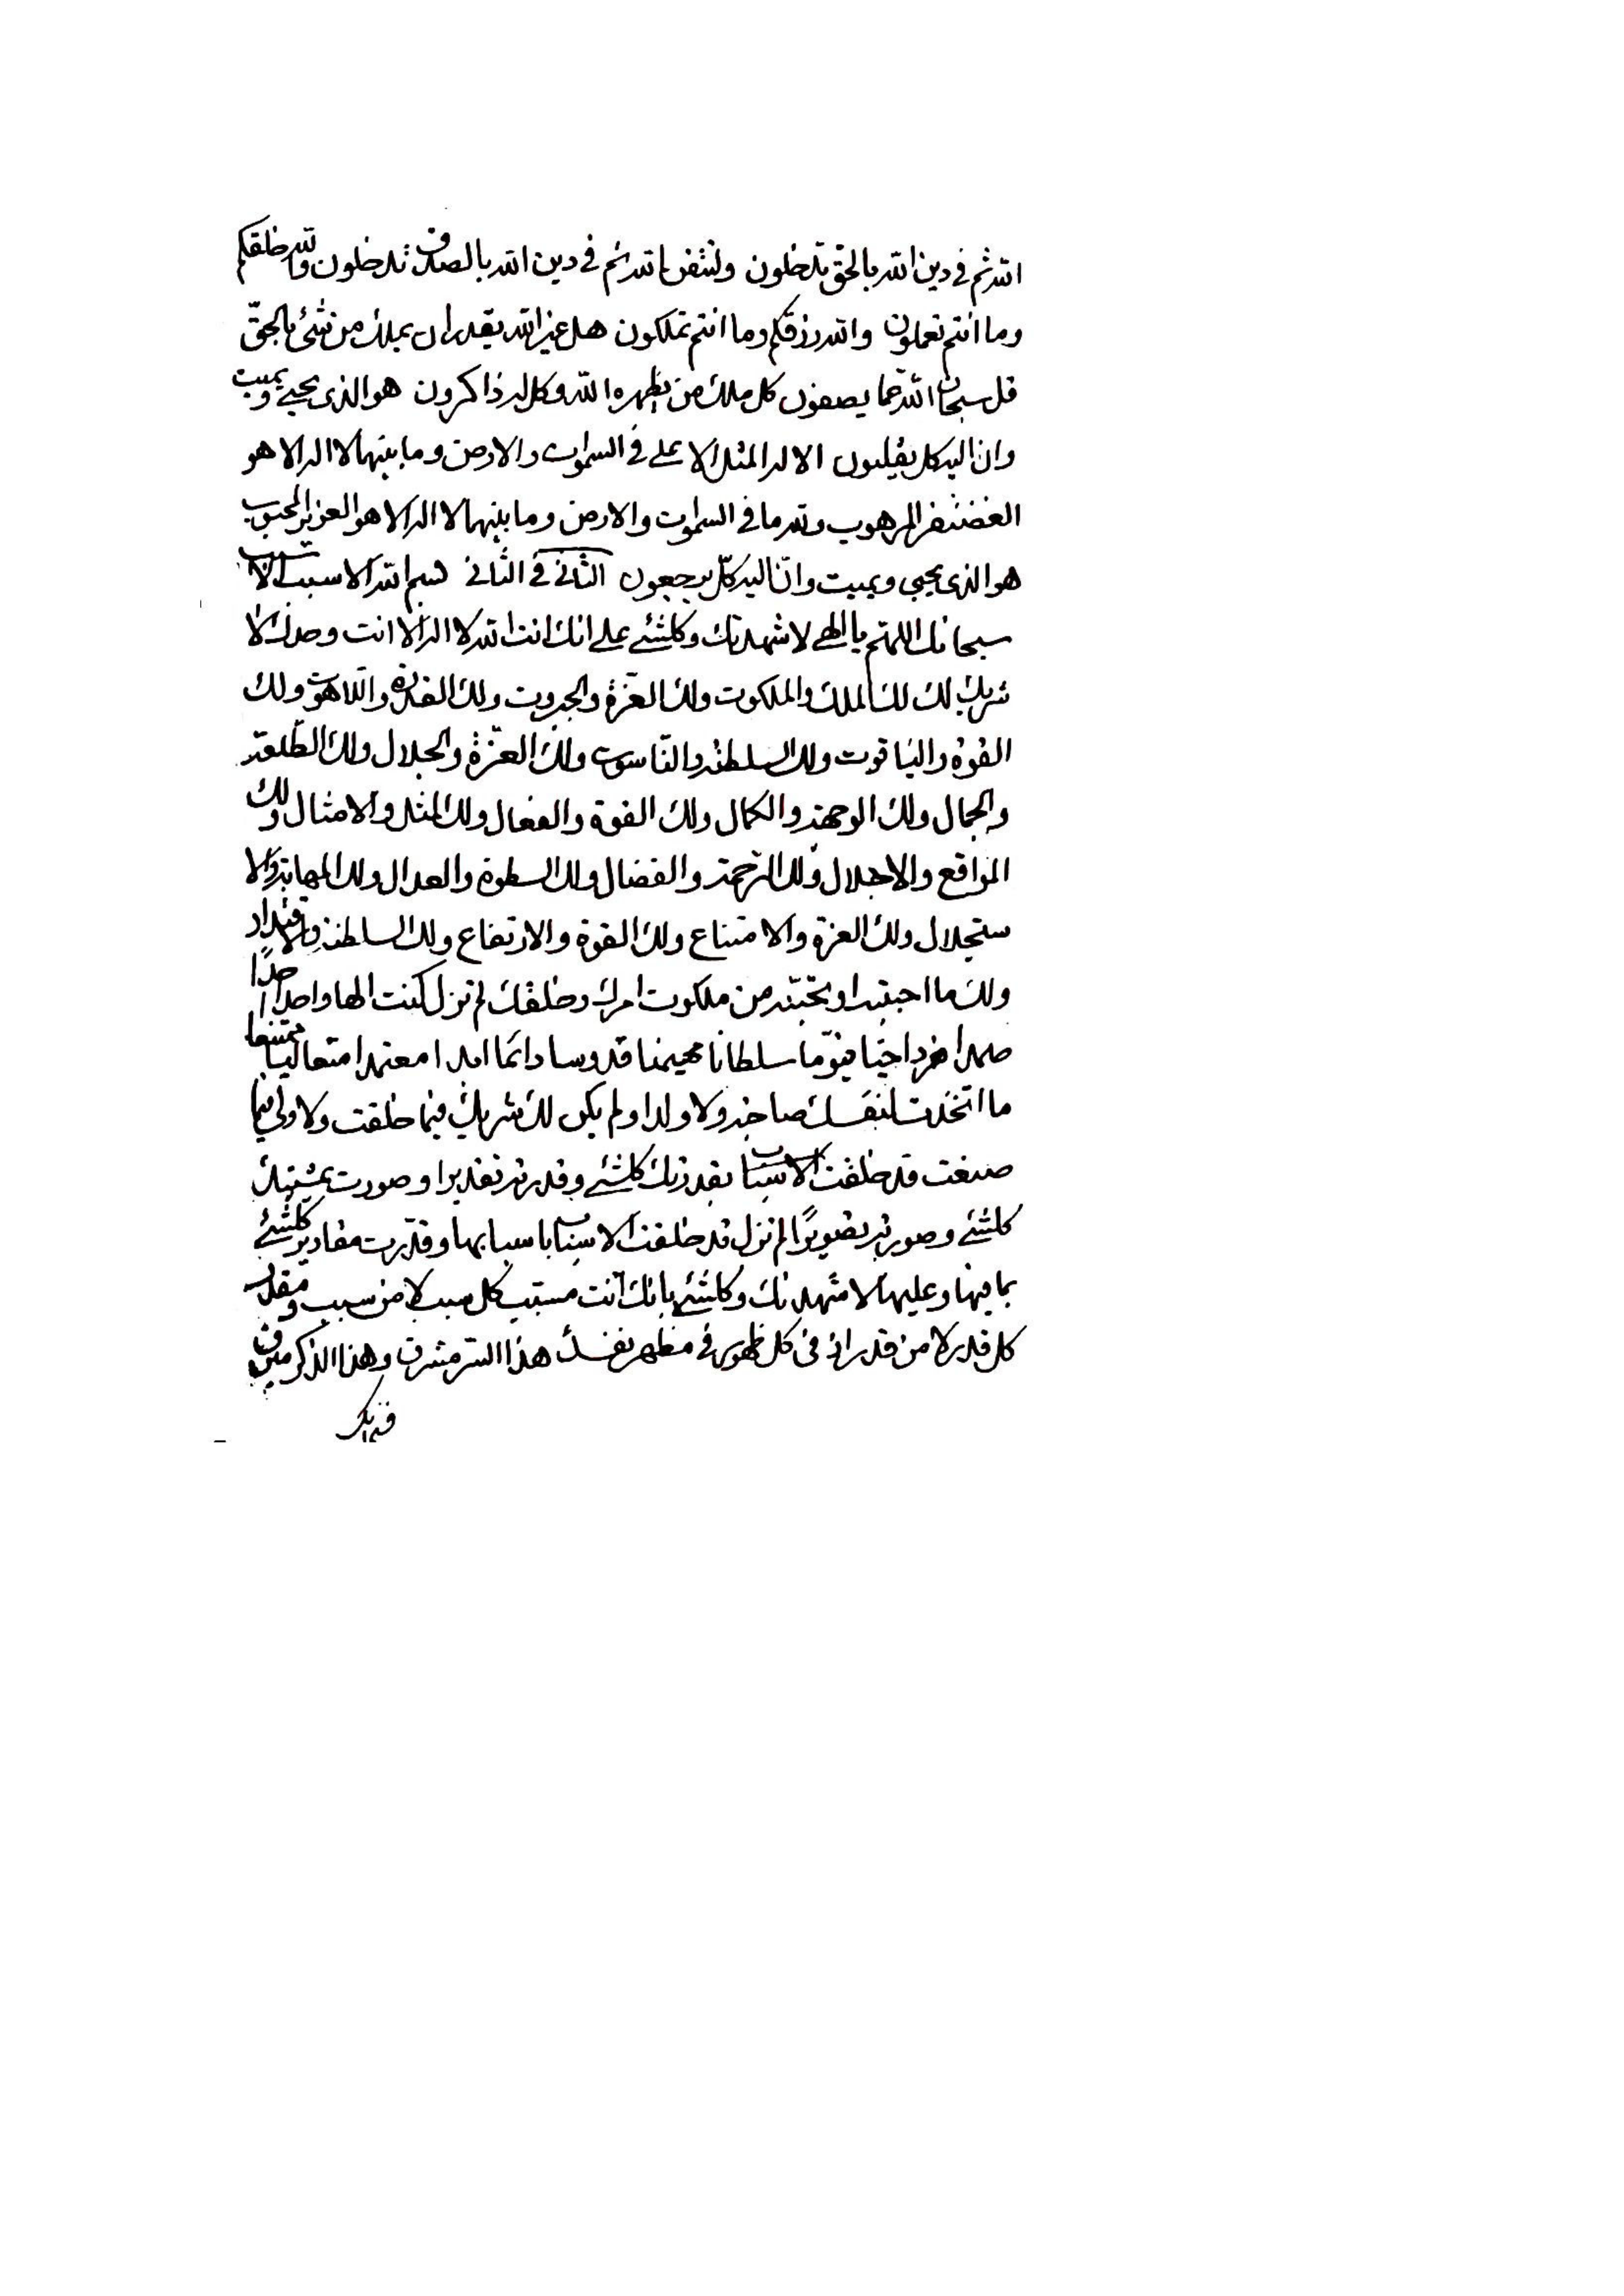 الله ثم في دين الله بالحق تدخلون ولتتقن الله ثم في دين الله بالصدق تدخلون والله خلقكم
وما انتم تعملون والله رزقكم وما انتم تملكون هل غير الله يقدر ان يملك من شئ بالحق
قل سبحان الله عما يصفون كل ملك من يظهره الله وكل له ذاكرون هو الذي يحيي ويميت
وان اليه كل يقلبون الا له المثل الاعلى في السموات والارض وما بينهما لا اله الا هو
الغضنفر المرهوب ولله ما في السموات والارض وما بينهما لا اله الا هو العزيز المحبوب
هو الذي يحيي ويميت وانّ اليه كلّ يرجعون الثاني في الثاني بسم الله الاسبب الاسبب
سبحانك اللهم يا الهي لاشهدنك وكلشئ على انك انت الله لا اله الا انت وحدك لا
شريك لك لك الملك والملكوت ولك العزة والجبروت ولك القدرة واللاهوت ولك
القوة والياقوت ولك السلطنة والناسوت ولك العزّة والجلال ولك الطلعة
والجمال ولك الوجهة والكمال ولك القوة والفعال ولك المثل والامثال ولك
المواقع والاجلال ولك الرحمة والفضال ولك السطوة والعدال ولك المهابة والا
ستجلال ولك العزة والامتناع ولك القوة والارتفاع ولك السلطنة والاقتدار
ولك ما احببته او تحبنّه من ملكوت امرك وخلقك لم تزل كنت الها واحدا احدًا
صمدا فردا حيّا قيوّما سلطانا مهيمنا قدوسا دائما ابدا معتمدا متعاليا ممتنعا
ما اتخذت لنفسك صاحبة ولا ولدا ولم يكن لك شريك فيما خلقت ولا ولي فيما
صنعت قد خلقت الاسباب بقدرتك كلشئ وقدرته تقديرا وصورت بمشيتك
كلشئ وصورته تصويرًا لم تزل قد خلقت الاسباب باسبابها وقدّرت مقادير كلشئ
بما فيها وعليها لاشهدنك وكلشئ بانك انت مسبب كل سبب لا من سبب ومقدر
كل قدر لا من قدر اذ في كل ظهور في مظهر نفسك هذا السر مشرق وهذا الذكر